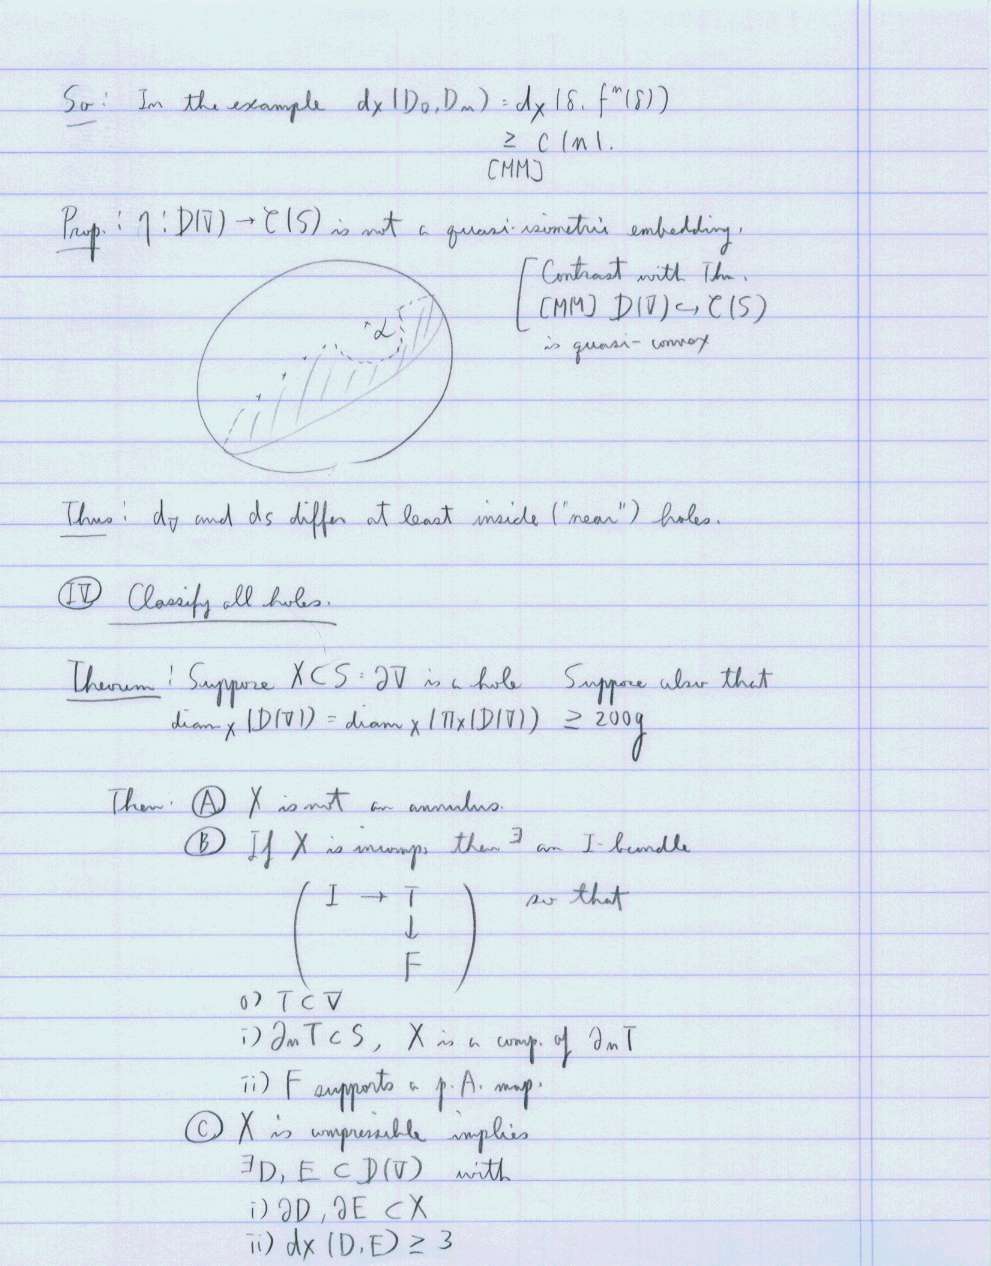 So: In the example dx(D₀,Dₙ) = dx(δ, fⁿ(δ))
≥ C |n|.
[MM]
Prop.: η: D(V) → C(S) is not a quasi-isometric embedding.
[Contrast with Thm.
[MM] D(V) ↪ C(S)
is quasi-convex
α
Thus: d_V and d_S differ at least inside ("near") holes.
IV Classify all holes.
Theorem: Suppose X⊂S=∂V is a hole Suppose also that
diam_X (D(V)) = diam_X (π_X(D(V)) ≥ 200g
Then: A X is not an annulus.
B If X is incomp. then ∃ an I-bundle
I → T so that
↓
F
0) T⊂V
i) ∂ₙT⊂S, X is a comp. of ∂ₙT
ii) F supports a p.A. map.
C X is compressible implies
∃D, E ⊂ D(V) with
i) ∂D, ∂E ⊂X
ii) dx (D,E) ≥ 3